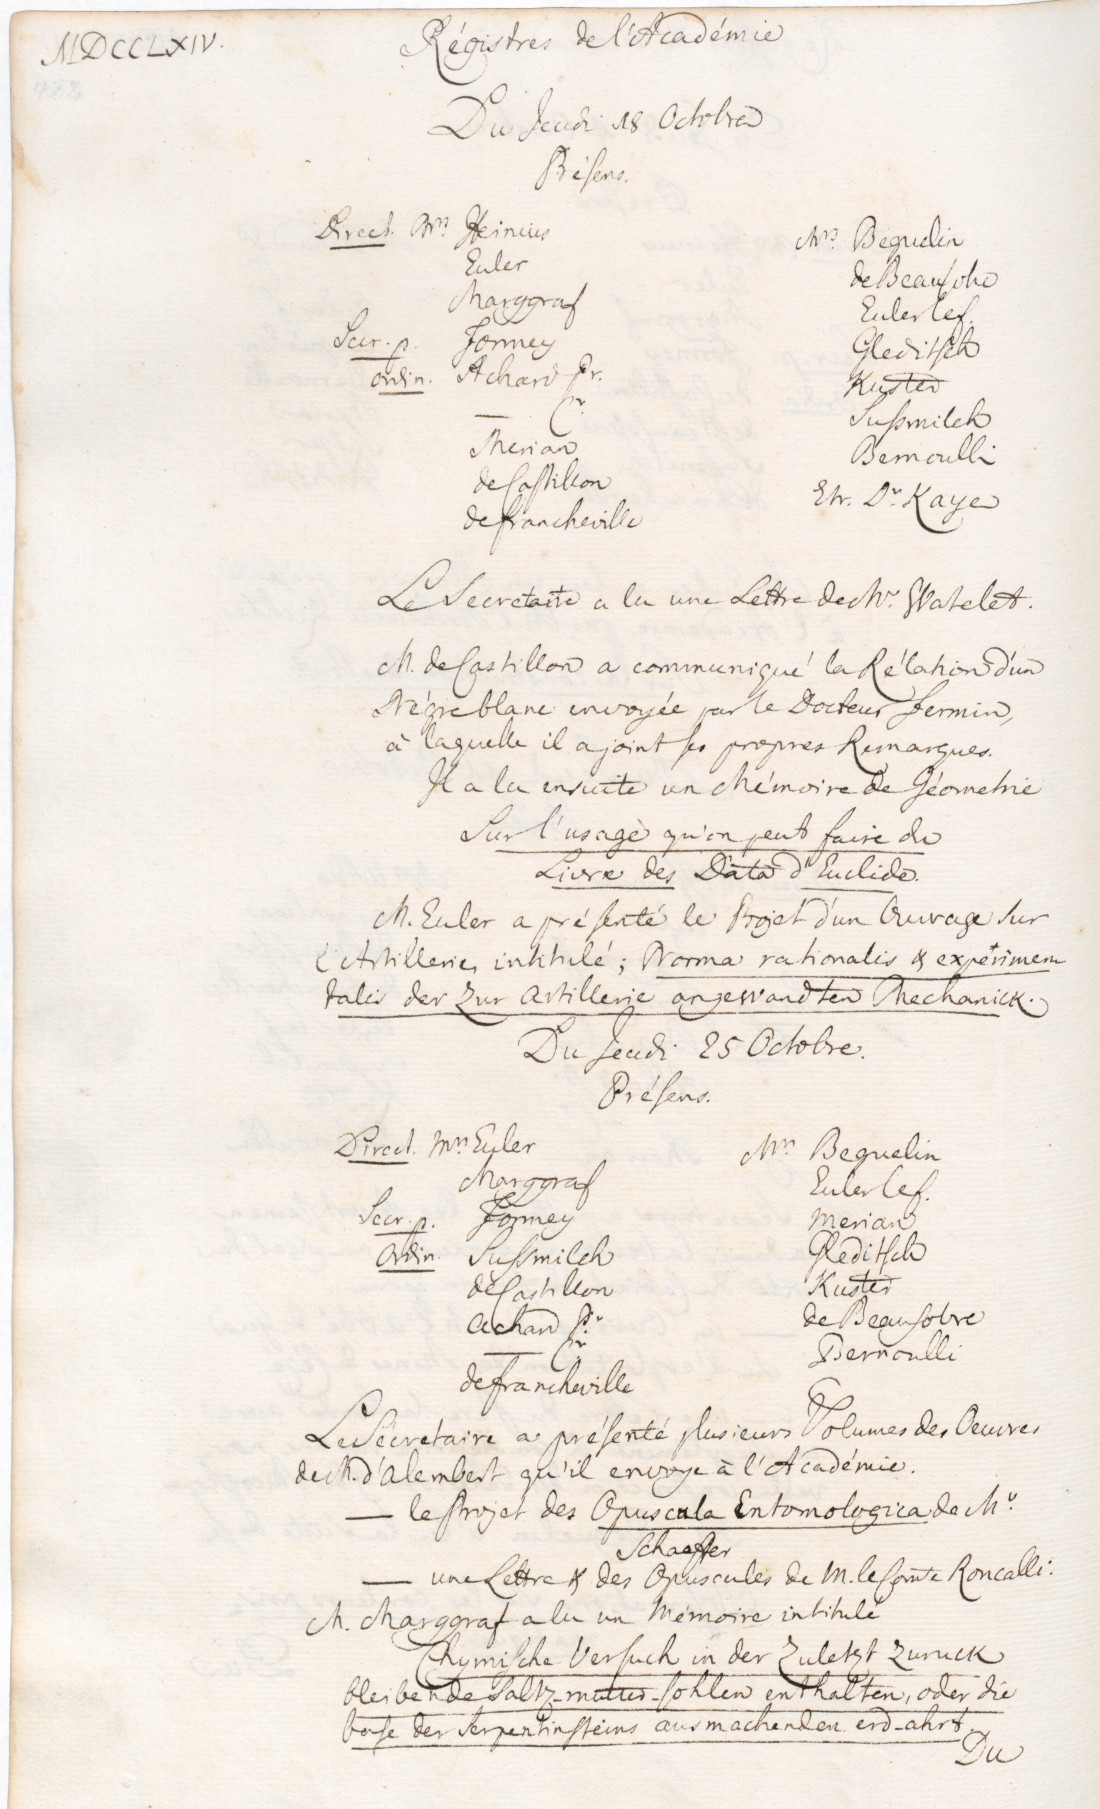 MDCCLXIV.
Régistres de l'Académie
Du Jeudi 18 Octobre
Présens.
Direct. Mrs Heinius
Euler
Marggraf
Secr. p. Formey
ordin. Achard Pr.
— Cr
Merian
de Castillon
de francheville
Mrs Beguelin
de Beausobre
Euler Cef.
Gleditsch
Kuster
Sussmilch
Bernoulli
Etr. Dr Kaye
Le Secretaire a lu une Lettre de Mr Watelet.
M. de Castillon a communiqué la Rélation d'un
Négre blanc envoyée par le Docteur Fermin,
à laquelle il a joint ses propres Remarques.
Il a lu ensuite un Mémoire de Géometrie
Sur l'usage qu'on peut faire du
Livre des Data d'Euclide.
M. Euler a présenté le Projet d'un Ouvrage sur
l'Artillerie, intitulé; Norma rationalis & experimen
talis der zur Artillerie angewandten Mechanick.
Du Jeudi 25 Octobre.
Présens.
Direct. Mrs Euler
Marggraf
Secr. p. Formey
Ordin. Sussmilch
de Castillon
Achard Pr
— Cr
de francheville
Mrs Beguelin
Euler Cef.
Merian
Gleditsch
Kuster
de Beausobre
Bernoulli
Le Sécretaire a présenté plusieurs Volumes des Oeuvres
de M. d'Alembert qu'il envoye à l'Académie.
— le Projet des Opuscula Entomologica de Mr
Schaeffer
— une Lettre & des Opuscules de M. le Comte Roncalli:
M. Marggraf a lu un Mémoire intitulé
Chymische Versuch in der zuletzt zuruck
bleibende Saltz-mutter-sohlen enthalten, oder die
base der Serpentinsteins ausmachenden erd-ahrt.
Du